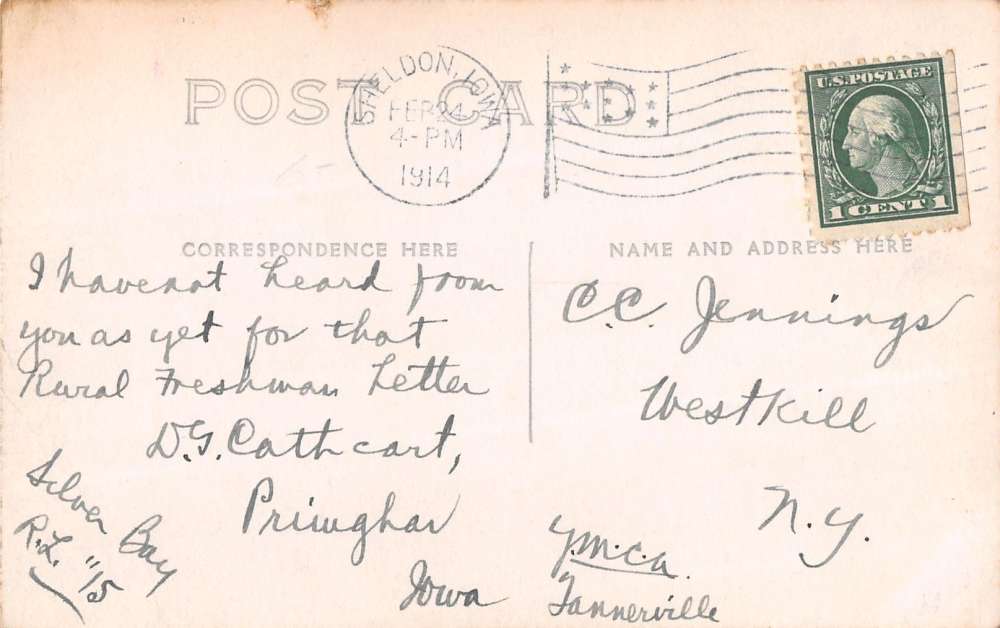 POST CARD
SHELDON, IOWA
FEB 24
4-PM
1914
U.S. POSTAGE
1 CENT 1
CORRESPONDENCE HERE
I have not heard from
you as yet for that
Rural Freshman Letter
D.G. Cathcart,
Primghar
Iowa
Silver Bay
R.L. "15
NAME AND ADDRESS HERE
C.C. Jennings
Westkill
N.Y.
Y.M.C.A.
Tannerville